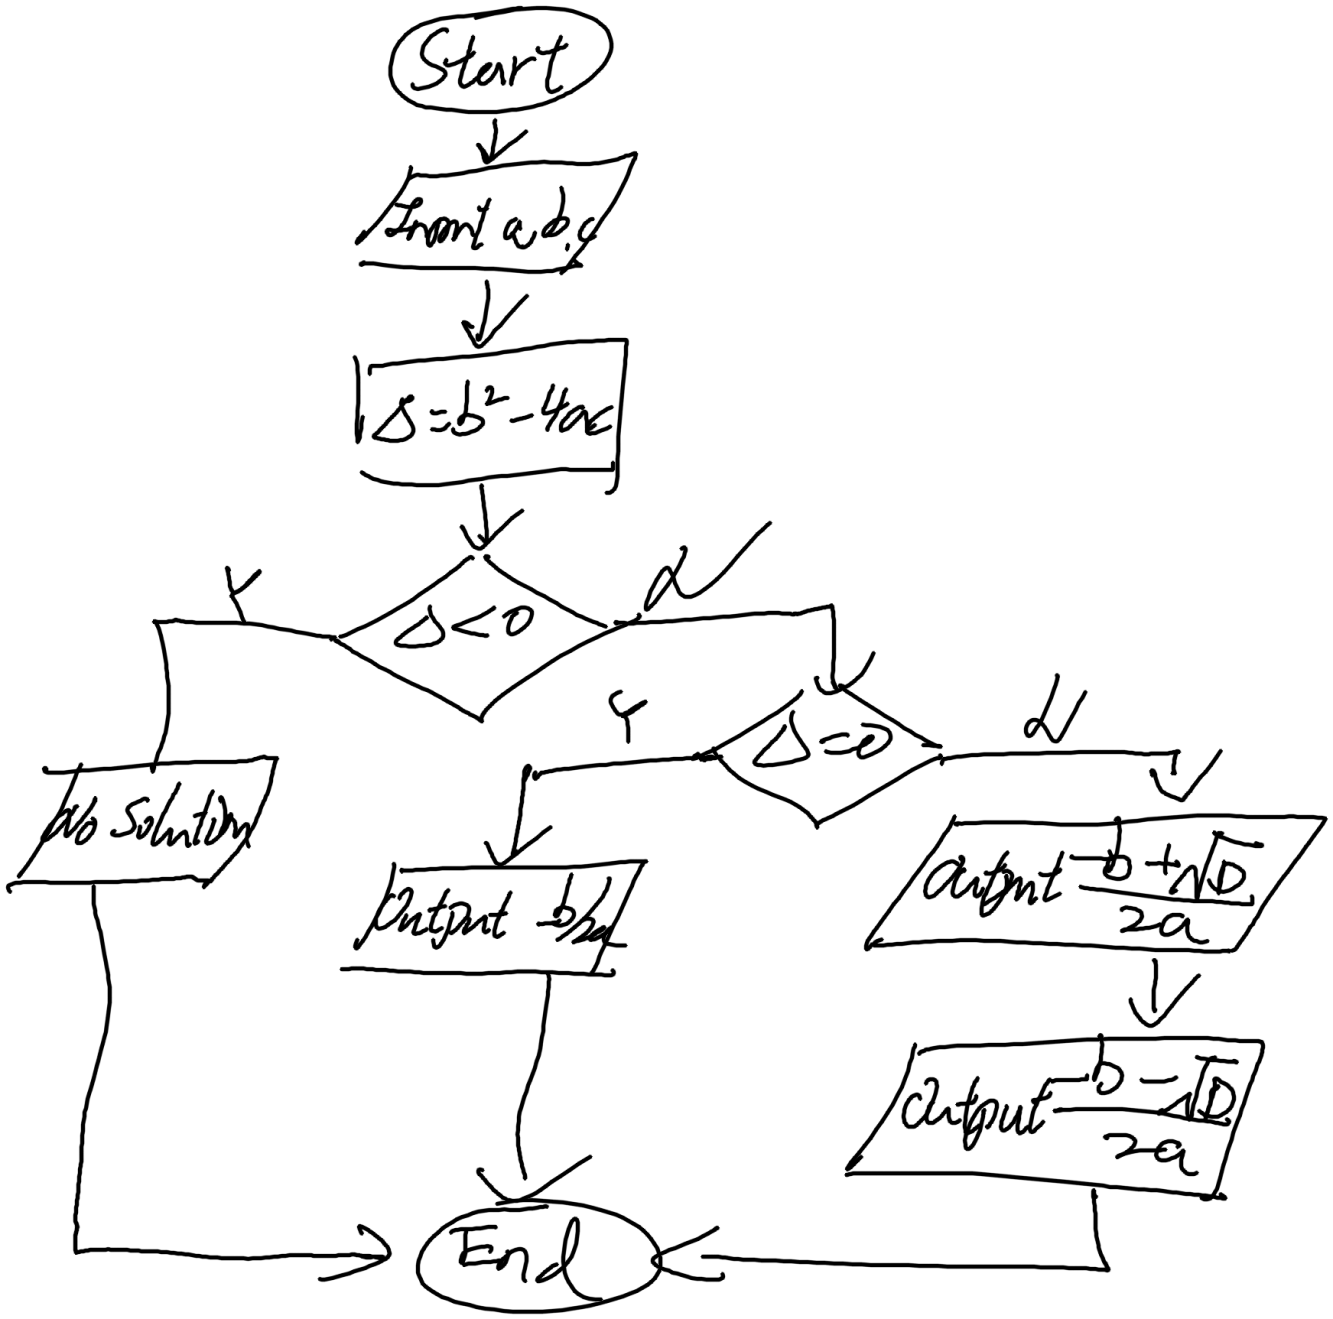 Start
Input a, b, c
Δ=b²-4ac
Y
N
Δ<0
Y
N
Δ=0
No Solution
Output -b/2a
Output (-b+√D)/2a
Output (-b-√D)/2a
End